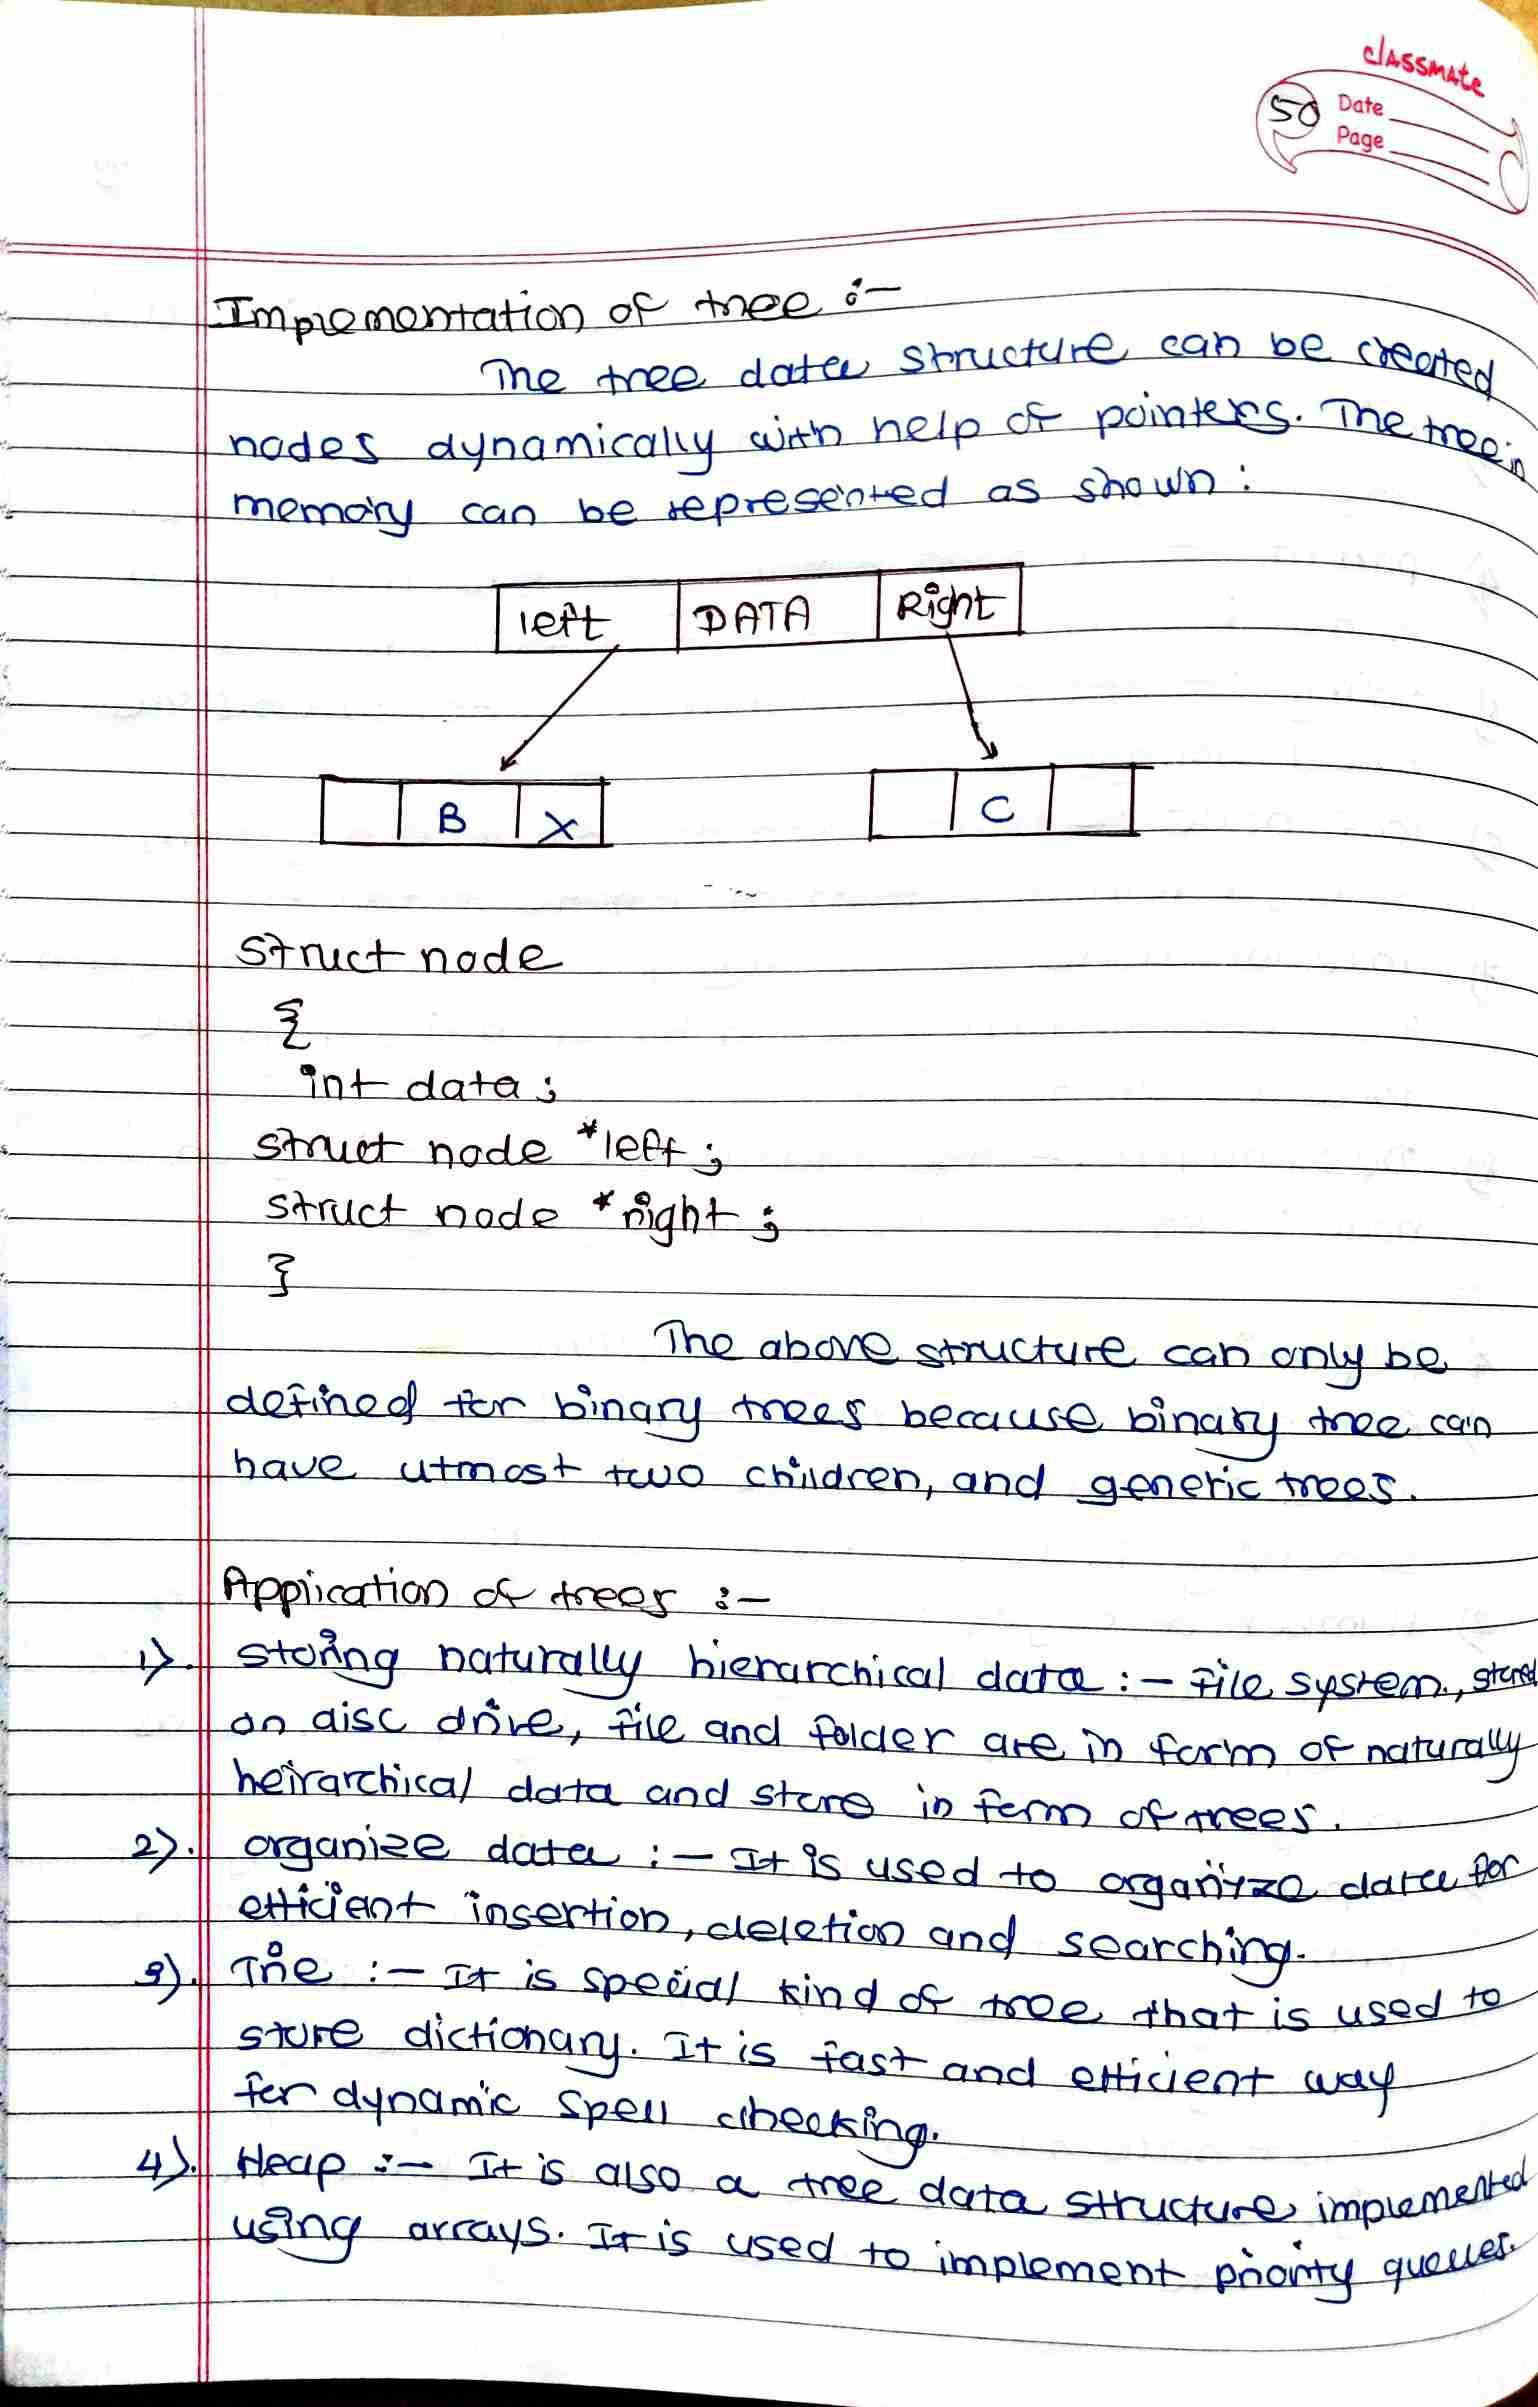 classmate
50 Date
Page
Implementation of tree :-
The tree data structure can be created
nodes dynamically with help of pointers. The tree in
memory can be represented as shown :
left DATA Right
B X C
struct node
{
int data ;
struct node *left ;
struct node *right ;
}
The above structure can only be
defined for binary trees because binary tree can
have utmost two children, and generic trees.
Application of trees :-
1). storing naturally hierarchical data : - file system, stored
on disc drive, file and folder are in form of naturally
heirarchical data and store in form of trees.
2). organize data : - It is used to organize data for
efficient insertion, deletion and searching.
3). Trie : - It is special kind of tree that is used to
store dictionary. It is fast and efficient way
for dynamic spell checking.
4). Heap :- It is also a tree data structure implemented
using arrays. It is used to implement priority queues.